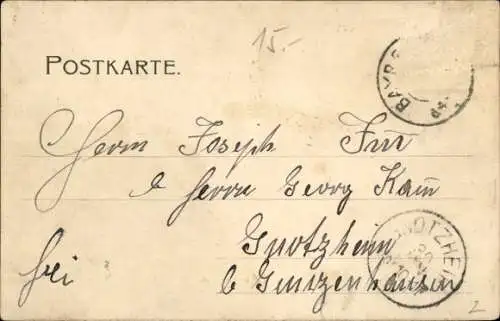 15.-
POSTKARTE.
BAYR
Herrn Joseph
Herrn Georg
Gnotzheim
b Gunzenhausen
frei
GNOTZHEIM
2